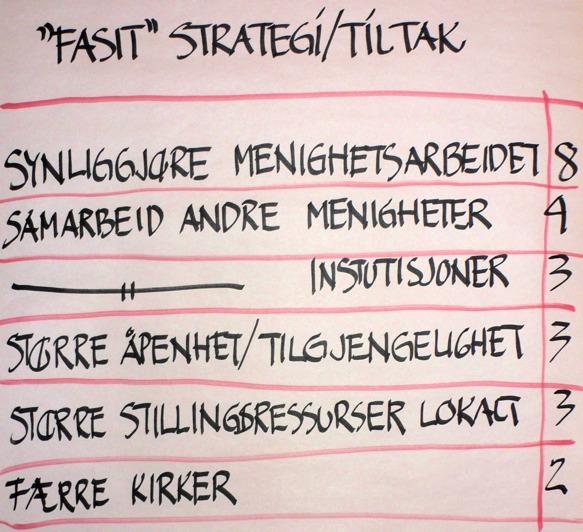 "FASIT" STRATEGI/TILTAK
SYNLIGGJØRE MENIGHETSARBEIDET 8
SAMARBEID ANDRE MENIGHETER 4
—————"————— INSTUTISJONER 3
STØRRE ÅPENHET/TILGJENGELIGHET 3
STØRRE STILLINGSRESSURSER LOKALT 3
FÆRRE KIRKER 2